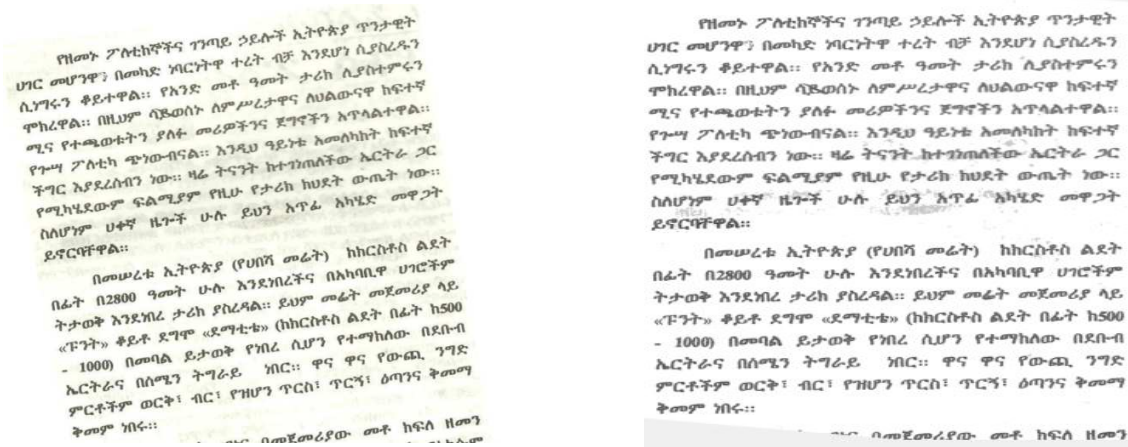 የዘመኑ ፖለቲከኞችና ገንጣይ ኃይሎች ኢትዮጵያ ጥንታዊት
ሀገር መሆንዋን በመካድ ነባርነትዋ ተረት ብቻ እንደሆነ ሲያስረዱን
ሲነግሩን ቆይተዋል። የአንድ መቶ ዓመት ታሪክ ሊያስተምሩን
ሞክረዋል። በዚህም ሳይወሰኑ ለምሥረታዋና ለህልውናዋ ከፍተኛ
ሚና የተጫወቱትን ያለፉ መሪዎችንና ጀግኖችን አጥላልተዋል።
የጐሣ ፖለቲካ ጭነውብናል። እንዲህ ዓይነቱ አመለካከት ከፍተኛ
ችግር እያደረሰብን ነው። ዛሬ ትናንት ከተገነጠለችው ኤርትራ ጋር
የሚካሄደውም ፍልሚያም የዚሁ የታሪክ ክህደት ውጤት ነው።
ስለሆነም ሀቀኛ ዜጐች ሁሉ ይህን አጥፊ አካሄድ መዋጋት
ይኖርባቸዋል።
በመሠረቱ ኢትዮጵያ (የሀበሻ መሬት) ከክርስቶስ ልደት
በፊት በ2800 ዓመት ሁሉ እንደነበረችና በአካባቢዋ ሀገሮችም
ትታወቅ እንደነበረ ታሪክ ያስረዳል። ይህም መሬት መጀመሪያ ላይ
«ፑንት» ቆይቶ ደግሞ «ደማቲቴ» (ከክርስቶስ ልደት በፊት ከ500
- 1000) በመባል ይታወቅ የነበረ ሲሆን የተማከለው በደቡብ
ኤርትራና በሰሜን ትግራይ ነበር። ዋና ዋና የውጪ ንግድ
ምርቶችም ወርቅ፣ ብር፣ የዝሆን ጥርስ፣ ጥርኝ፣ ዕጣንና ቅመማ
ቅመም ነበሩ።
በመጀመሪያው መቶ ክፍለ ዘመን
የዘመኑ ፖለቲከኞችና ገንጣይ ኃይሎች ኢትዮጵያ ጥንታዊት
ሀገር መሆንዋን በመካድ ነባርነትዋ ተረት ብቻ እንደሆነ ሲያስረዱን
ሲነግሩን ቆይተዋል። የአንድ መቶ ዓመት ታሪክ ሊያስተምሩን
ሞክረዋል። በዚህም ሳይወሰኑ ለምሥረታዋና ለህልውናዋ ከፍተኛ
ሚና የተጫወቱትን ያለፉ መሪዎችንና ጀግኖችን አጥላልተዋል።
የጐሣ ፖለቲካ ጭነውብናል። እንዲህ ዓይነቱ አመለካከት ከፍተኛ
ችግር እያደረሰብን ነው። ዛሬ ትናንት ከተገነጠለችው ኤርትራ ጋር
የሚካሄደውም ፍልሚያም የዚሁ የታሪክ ክህደት ውጤት ነው።
ስለሆነም ሀቀኛ ዜጐች ሁሉ ይህን አጥፊ አካሄድ መዋጋት
ይኖርባቸዋል።
በመሠረቱ ኢትዮጵያ (የሀበሻ መሬት) ከክርስቶስ ልደት
በፊት በ2800 ዓመት ሁሉ እንደነበረችና በአካባቢዋ ሀገሮችም
ትታወቅ እንደነበረ ታሪክ ያስረዳል። ይህም መሬት መጀመሪያ ላይ
«ፑንት» ቆይቶ ደግሞ «ደማቲቴ» (ከክርስቶስ ልደት በፊት ከ500
- 1000) በመባል ይታወቅ የነበረ ሲሆን የተማከለው በደቡብ
ኤርትራና በሰሜን ትግራይ ነበር። ዋና ዋና የውጪ ንግድ
ምርቶችም ወርቅ፣ ብር፣ የዝሆን ጥርስ፣ ጥርኝ፣ ዕጣንና ቅመማ
ቅመም ነበሩ።
በመጀመሪያው መቶ ክፍለ ዘመን